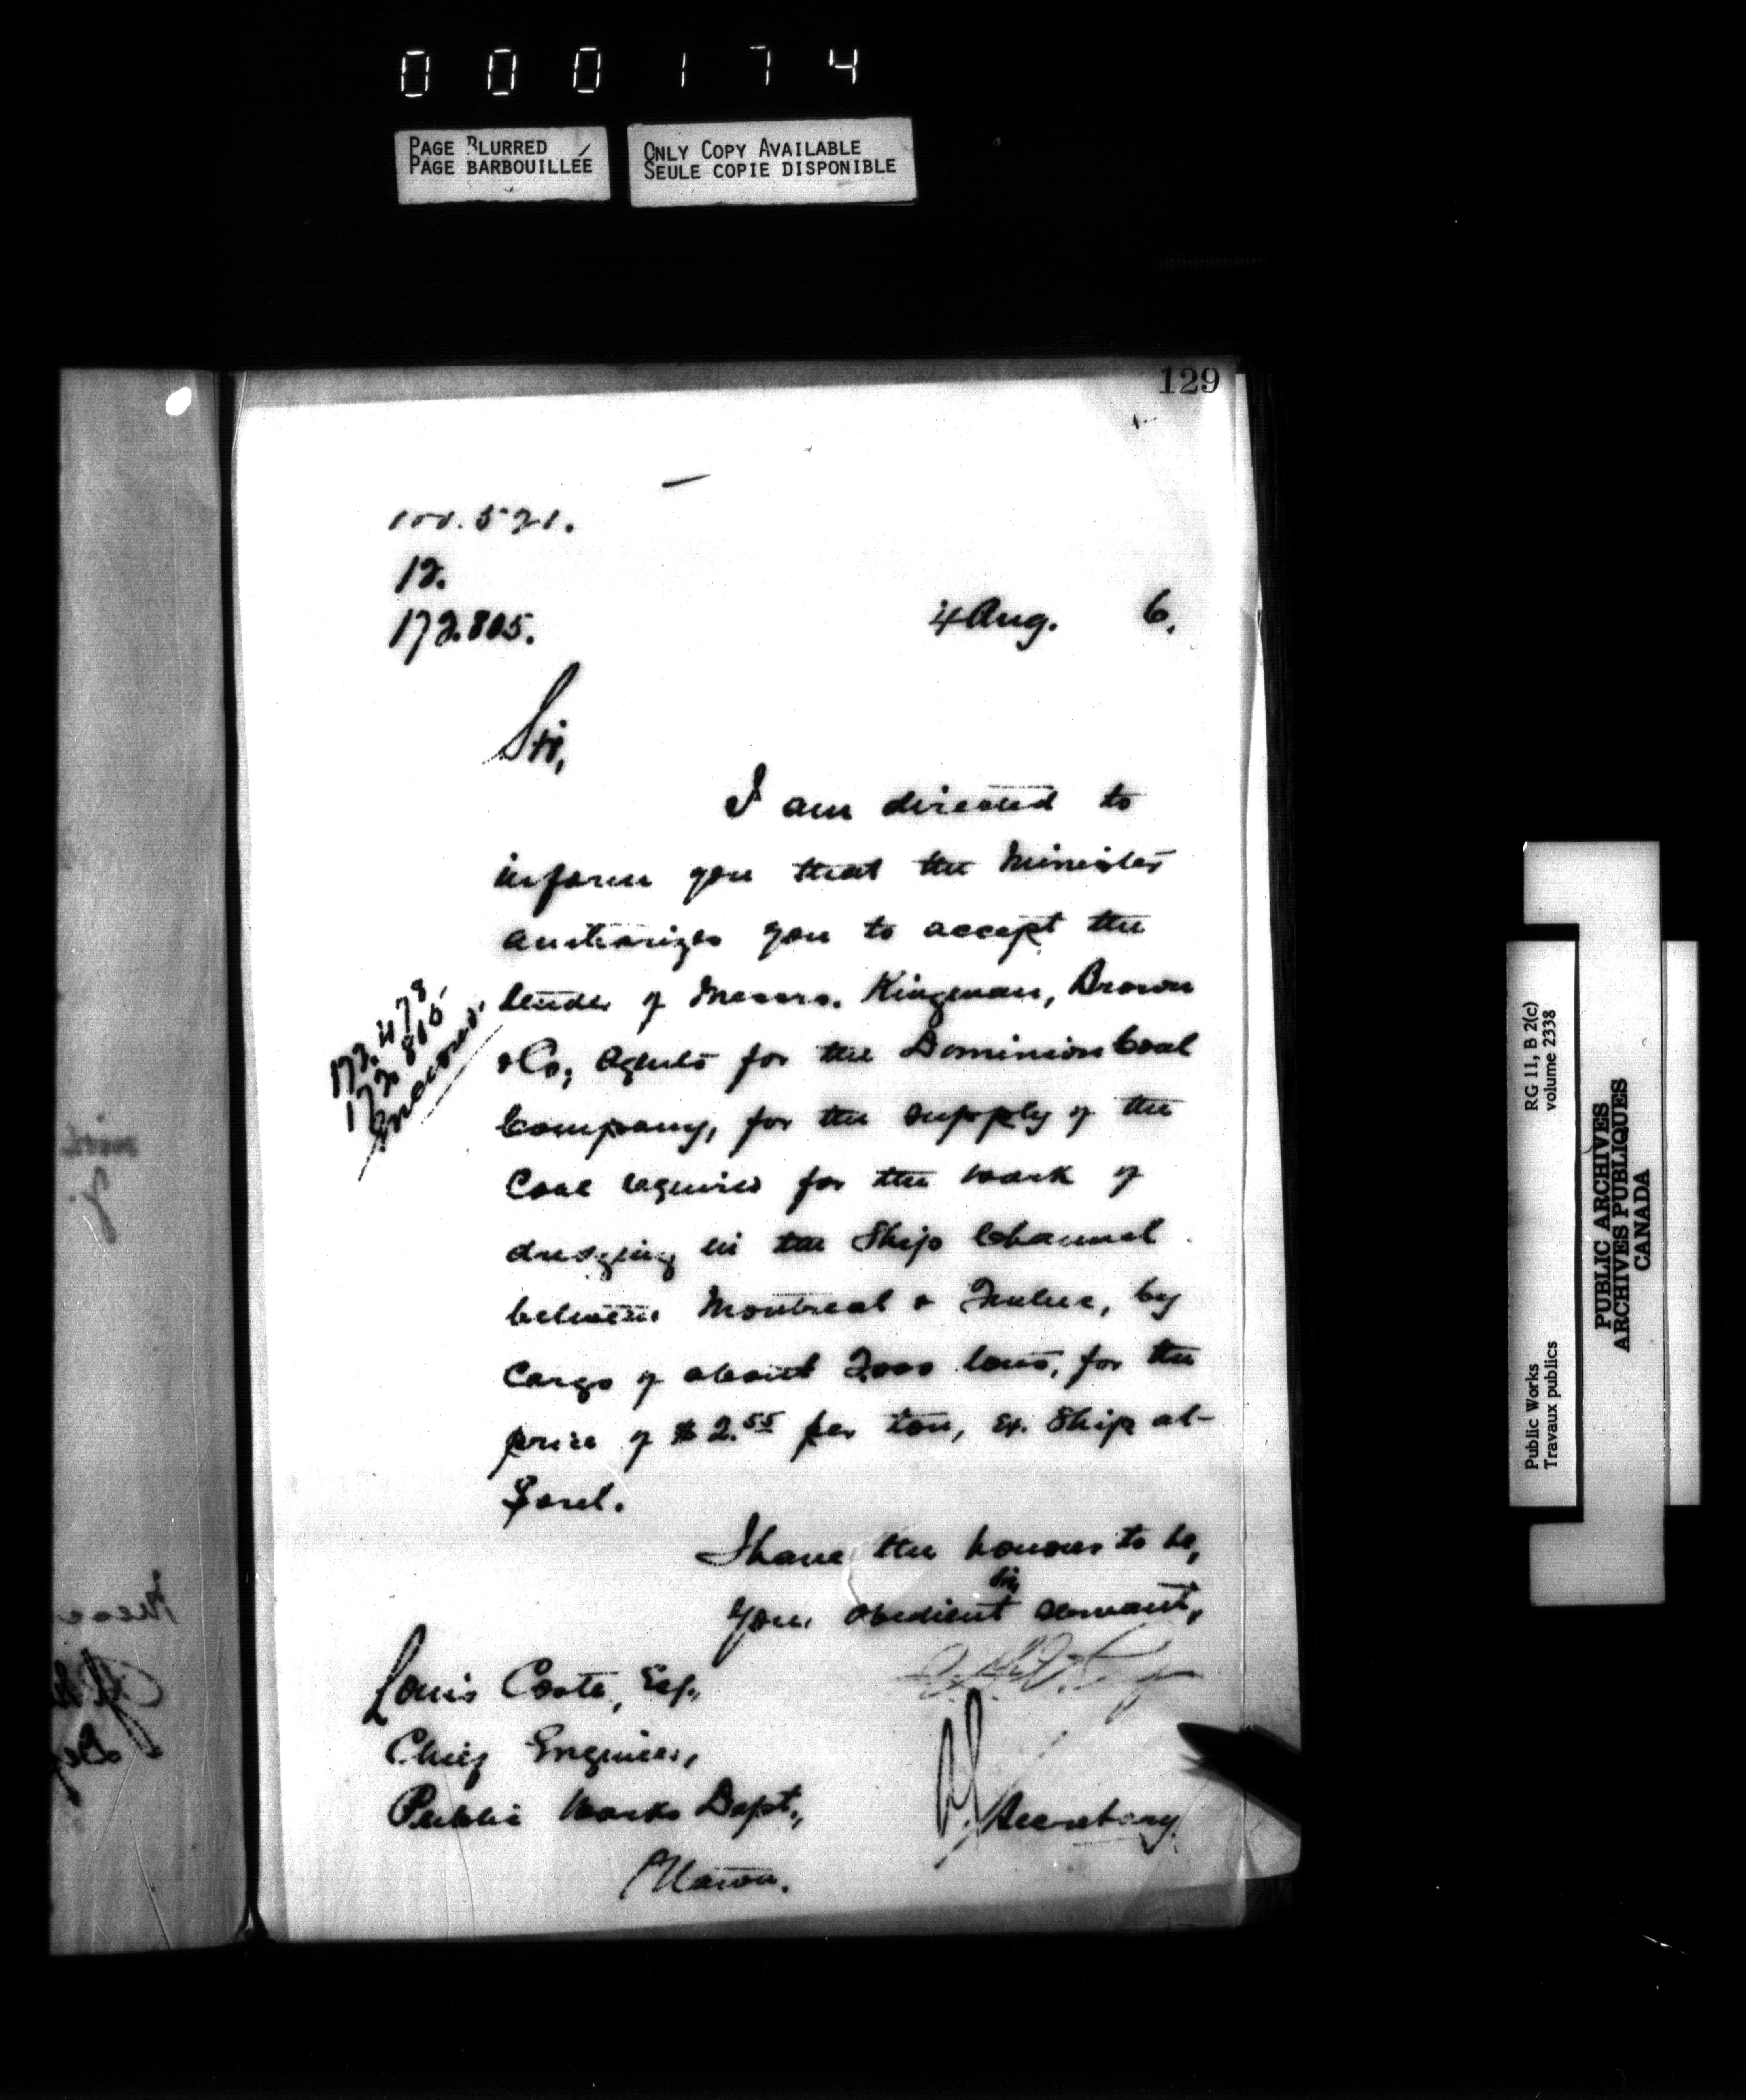 000174
PAGE BLURRED
PAGE BARBOUILLÉE
ONLY COPY AVAILABLE
SEULE COPIE DISPONIBLE
129
12.
172.805.
4 Aug. 6.
Sir,
I am directed to
inform you that the Minister
authorizes you to accept the
tender of Messrs. Kingman, Brown
& Co, Agents for the Dominion Coal
Company, for the supply of the
Coal required for the work of
dredging in the Ship Channel
between Montreal & Quebec, by
Cargo of about 2,000 tons, for the
price of $2.55 per ton, ex. Ship at
Sorel.
172.478,
172.805
I have the honour to be,
Sir,
Your obedient servant,
Louis Coste, Esq.,
Chief Engineer,
Public Works Dept.,
Ottawa.
Secretary.
RG 11, B 2(c)
volume 2338
Public Works
Travaux publics
PUBLIC ARCHIVES
ARCHIVES PUBLIQUES
CANADA